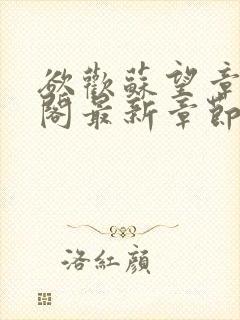 欲歡蘇望章
閣最新章節
洛紅顏